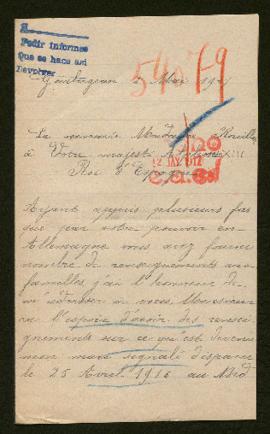 Pedir informes
Que se haga así
Devolver
54079
Mai 1917
La
à Votre majesté Alphonse XIII
Roi d'Espagne
Ayant appris plusieurs fois
que par votre pouvoir en
Allemagne vous avez fourni
nombre de renseignements aux
familles j'ai l'honneur de
m'adresser a vous Monsieur
en l'espoir d'avoir des rensei
gnements sur ce qu'est devenu
mon mari signalé disparu
le 25 Avril 1916 au